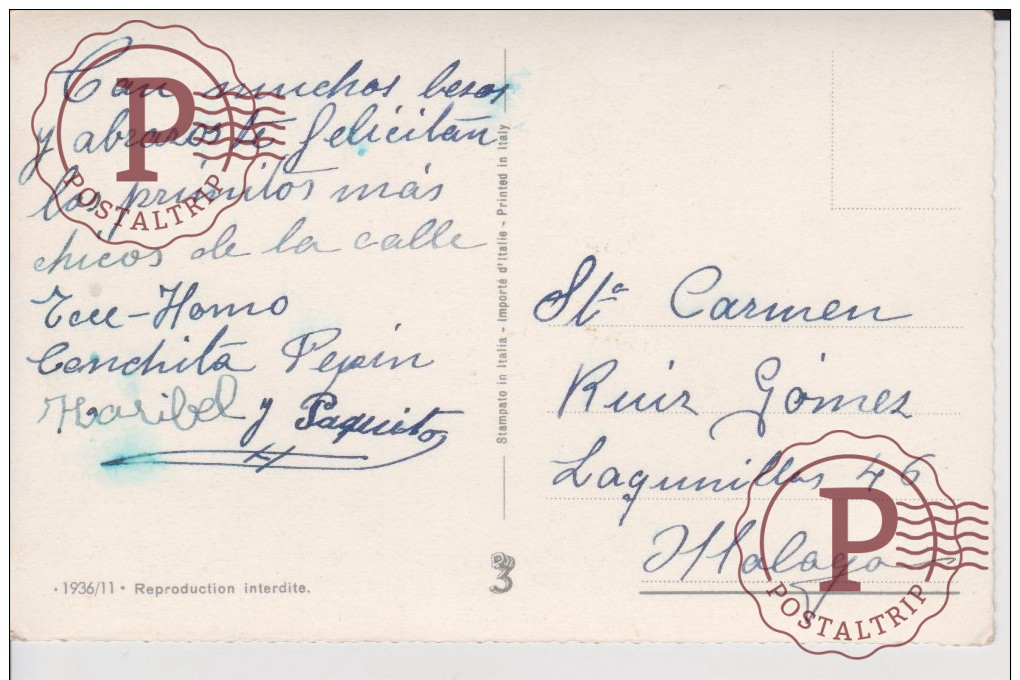 Con muchos besos
y abrazos te felicitán
los primitos más
chicos de la calle
Ecce-Homo
Conchita Pepin
Maribel y Paquito
Stª Carmen
Ruiz Gómez
Lagunillas 46
Malaga
Stampato in Italia - Importé d'Italie - Printed in Italy
• 1936/11 • Reproduction interdite.
3
P
POSTALTRIP
P
POSTALTRIP